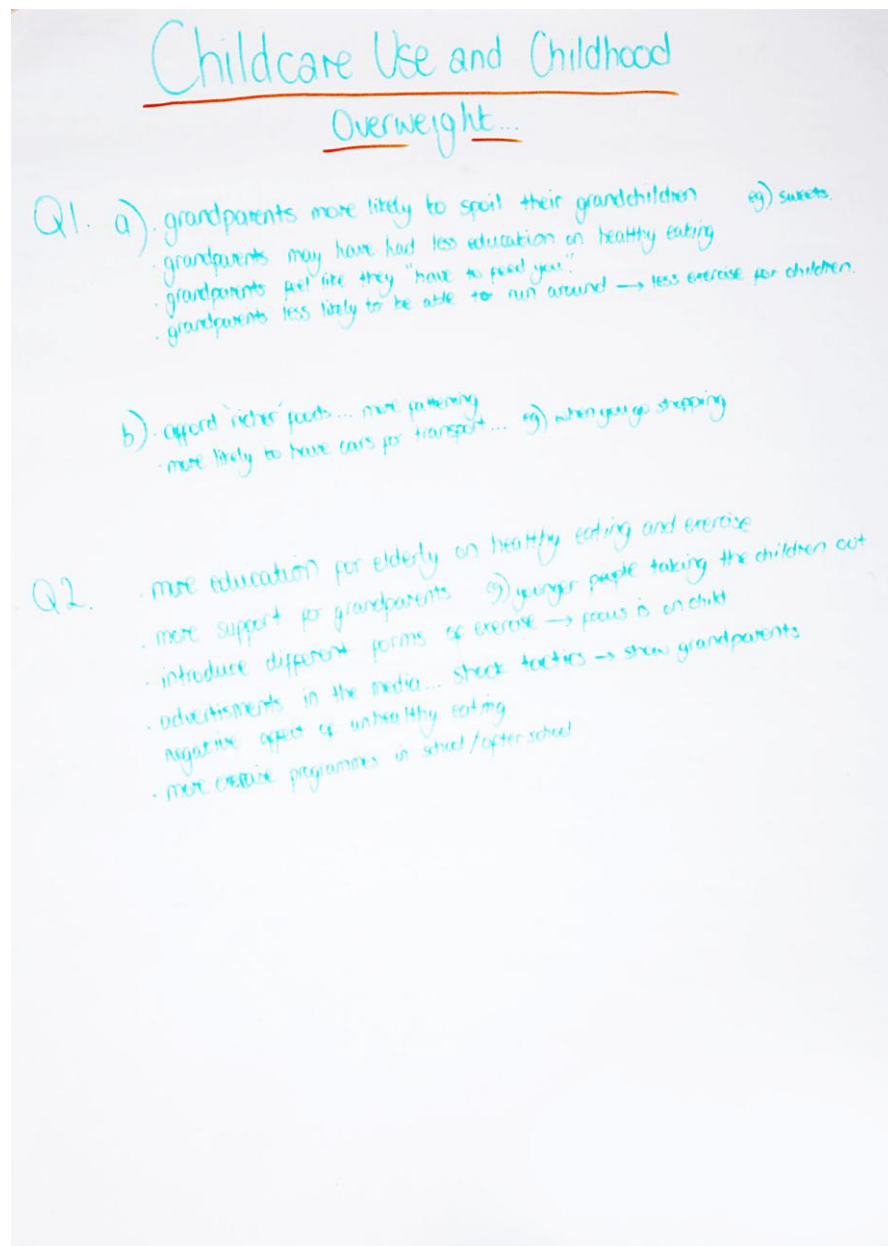 Childcare Use and Childhood
Overweight...
Q1. a) · grandparents more likely to spoil their grandchildren eg) sweets.
· grandparents may have had less education on healthy eating
· grandparents feel like they "have to feed you".
· grandparents less likely to be able to run around → less exercise for children.
b) · afford 'richer' foods... more fattening
· more likely to have cars for transport... eg) when you go shopping
Q2. · more education for elderly on healthy eating and exercise
· more support for grandparents eg) younger people taking the children out
· introduce different forms of exercise → focus is on child
· advertisments in the media... shock tactics → show grandparents
negative effect of unhealthy eating
· more exercise programmes in school / after school